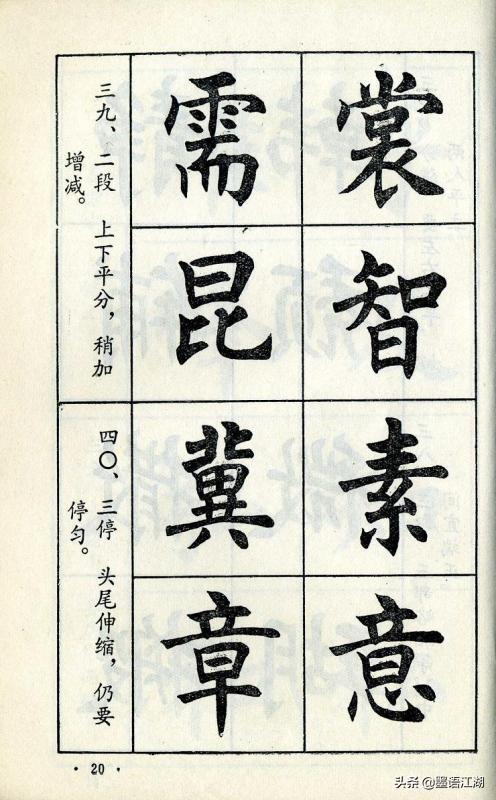 裳智
需昆
三九、二段 上下平分，稍加
增减。
素意
冀章
四〇、三停 头尾伸缩，仍要
停匀。
· 20 ·
头条 @墨语江湖